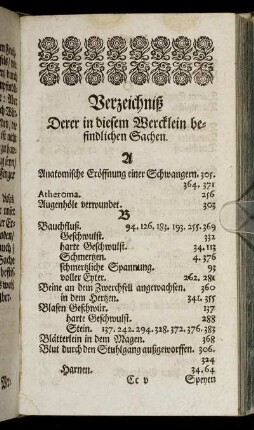 Verzeichniß
Derer in diesem Wercklein be-
findlichen Sachen.
A
Anatomische Eröffnung einer Schwangern. 305.
364. 371
Atheroma. 256
Augenhöle verwundet. 303
B
Bauchfluß. 94. 126. 183. 193. 255. 369
Geschwulst. 332
harte Geschwulst. 34. 113
Schmertzen. 4. 376
schmertzliche Spannung. 93
voller Eyter. 262. 281
Beine an dem Zwerchfell angewachsen. 360
in dem Hertzen. 342. 355
Blasen Geschwür. 137
harte Geschwulst. 288
Stein. 137. 242. 294. 328. 372. 376. 383
Blätterlein in dem Magen. 368
Blut durch den Stuhlgang außgeworffen. 306.
324
Harnen. 34. 64
Cc v Speyen